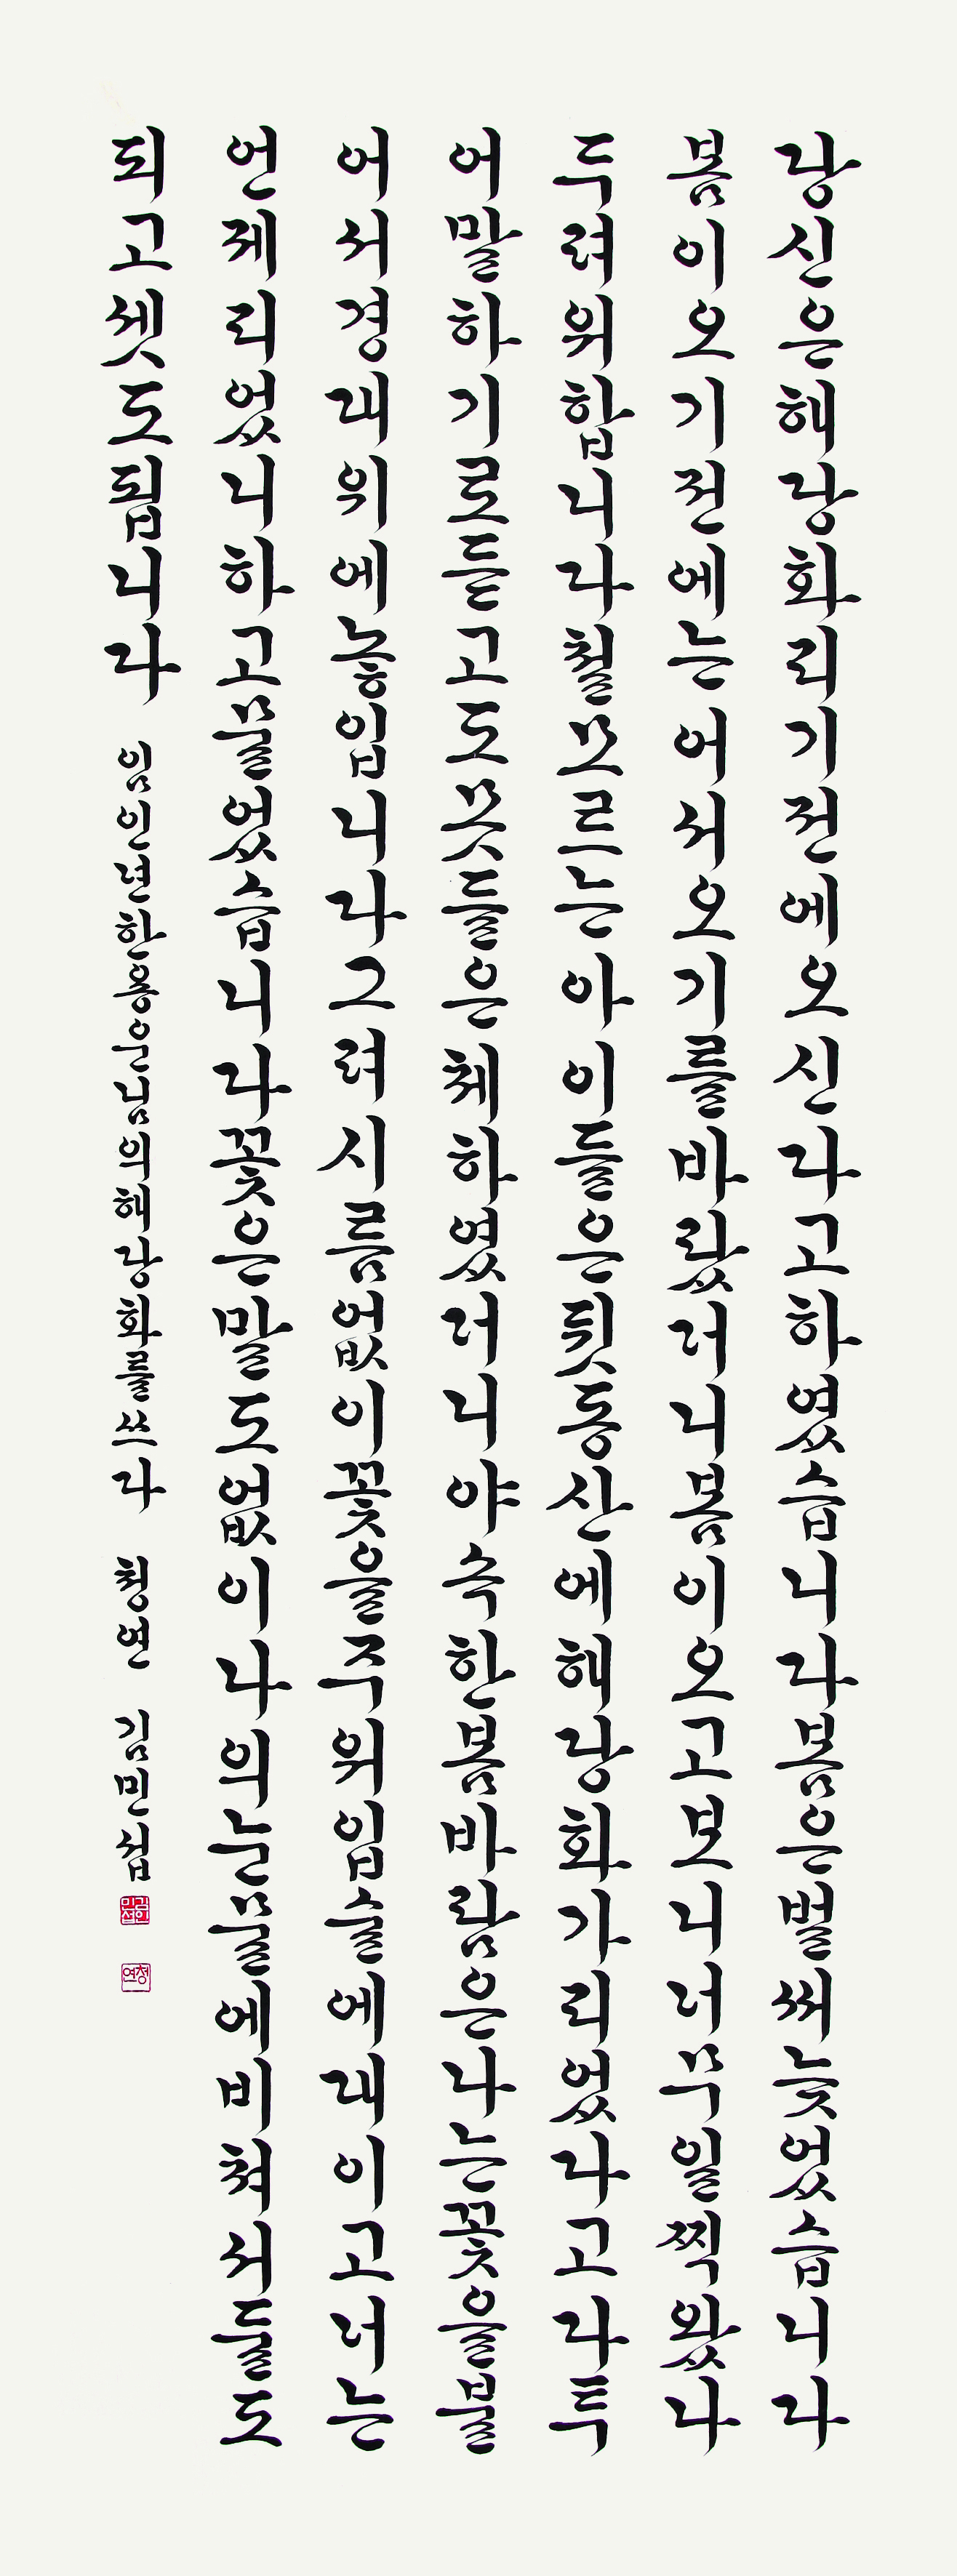 당신은해당화피기전에오신다고하였습니다봄은벌써늦었습니다
봄이오기전에는어서오기를바랐더니봄이오고보니너무일찍왔나
두려워합니다철모르는아이들은뒷동산에해당화가피었다고다투
어말하기로듣고도못들은체하였더니야속한봄바람은나는꽃을불
어서경대위에놓입니다그려시름없이꽃을주워입술에대이고너는
언제피었니하고물었습니다꽃은말도없이나의눈물에비쳐서둘도
되고셋도됩니다 임인년한용운님의해당화를쓰다 청연 김민섭
청연